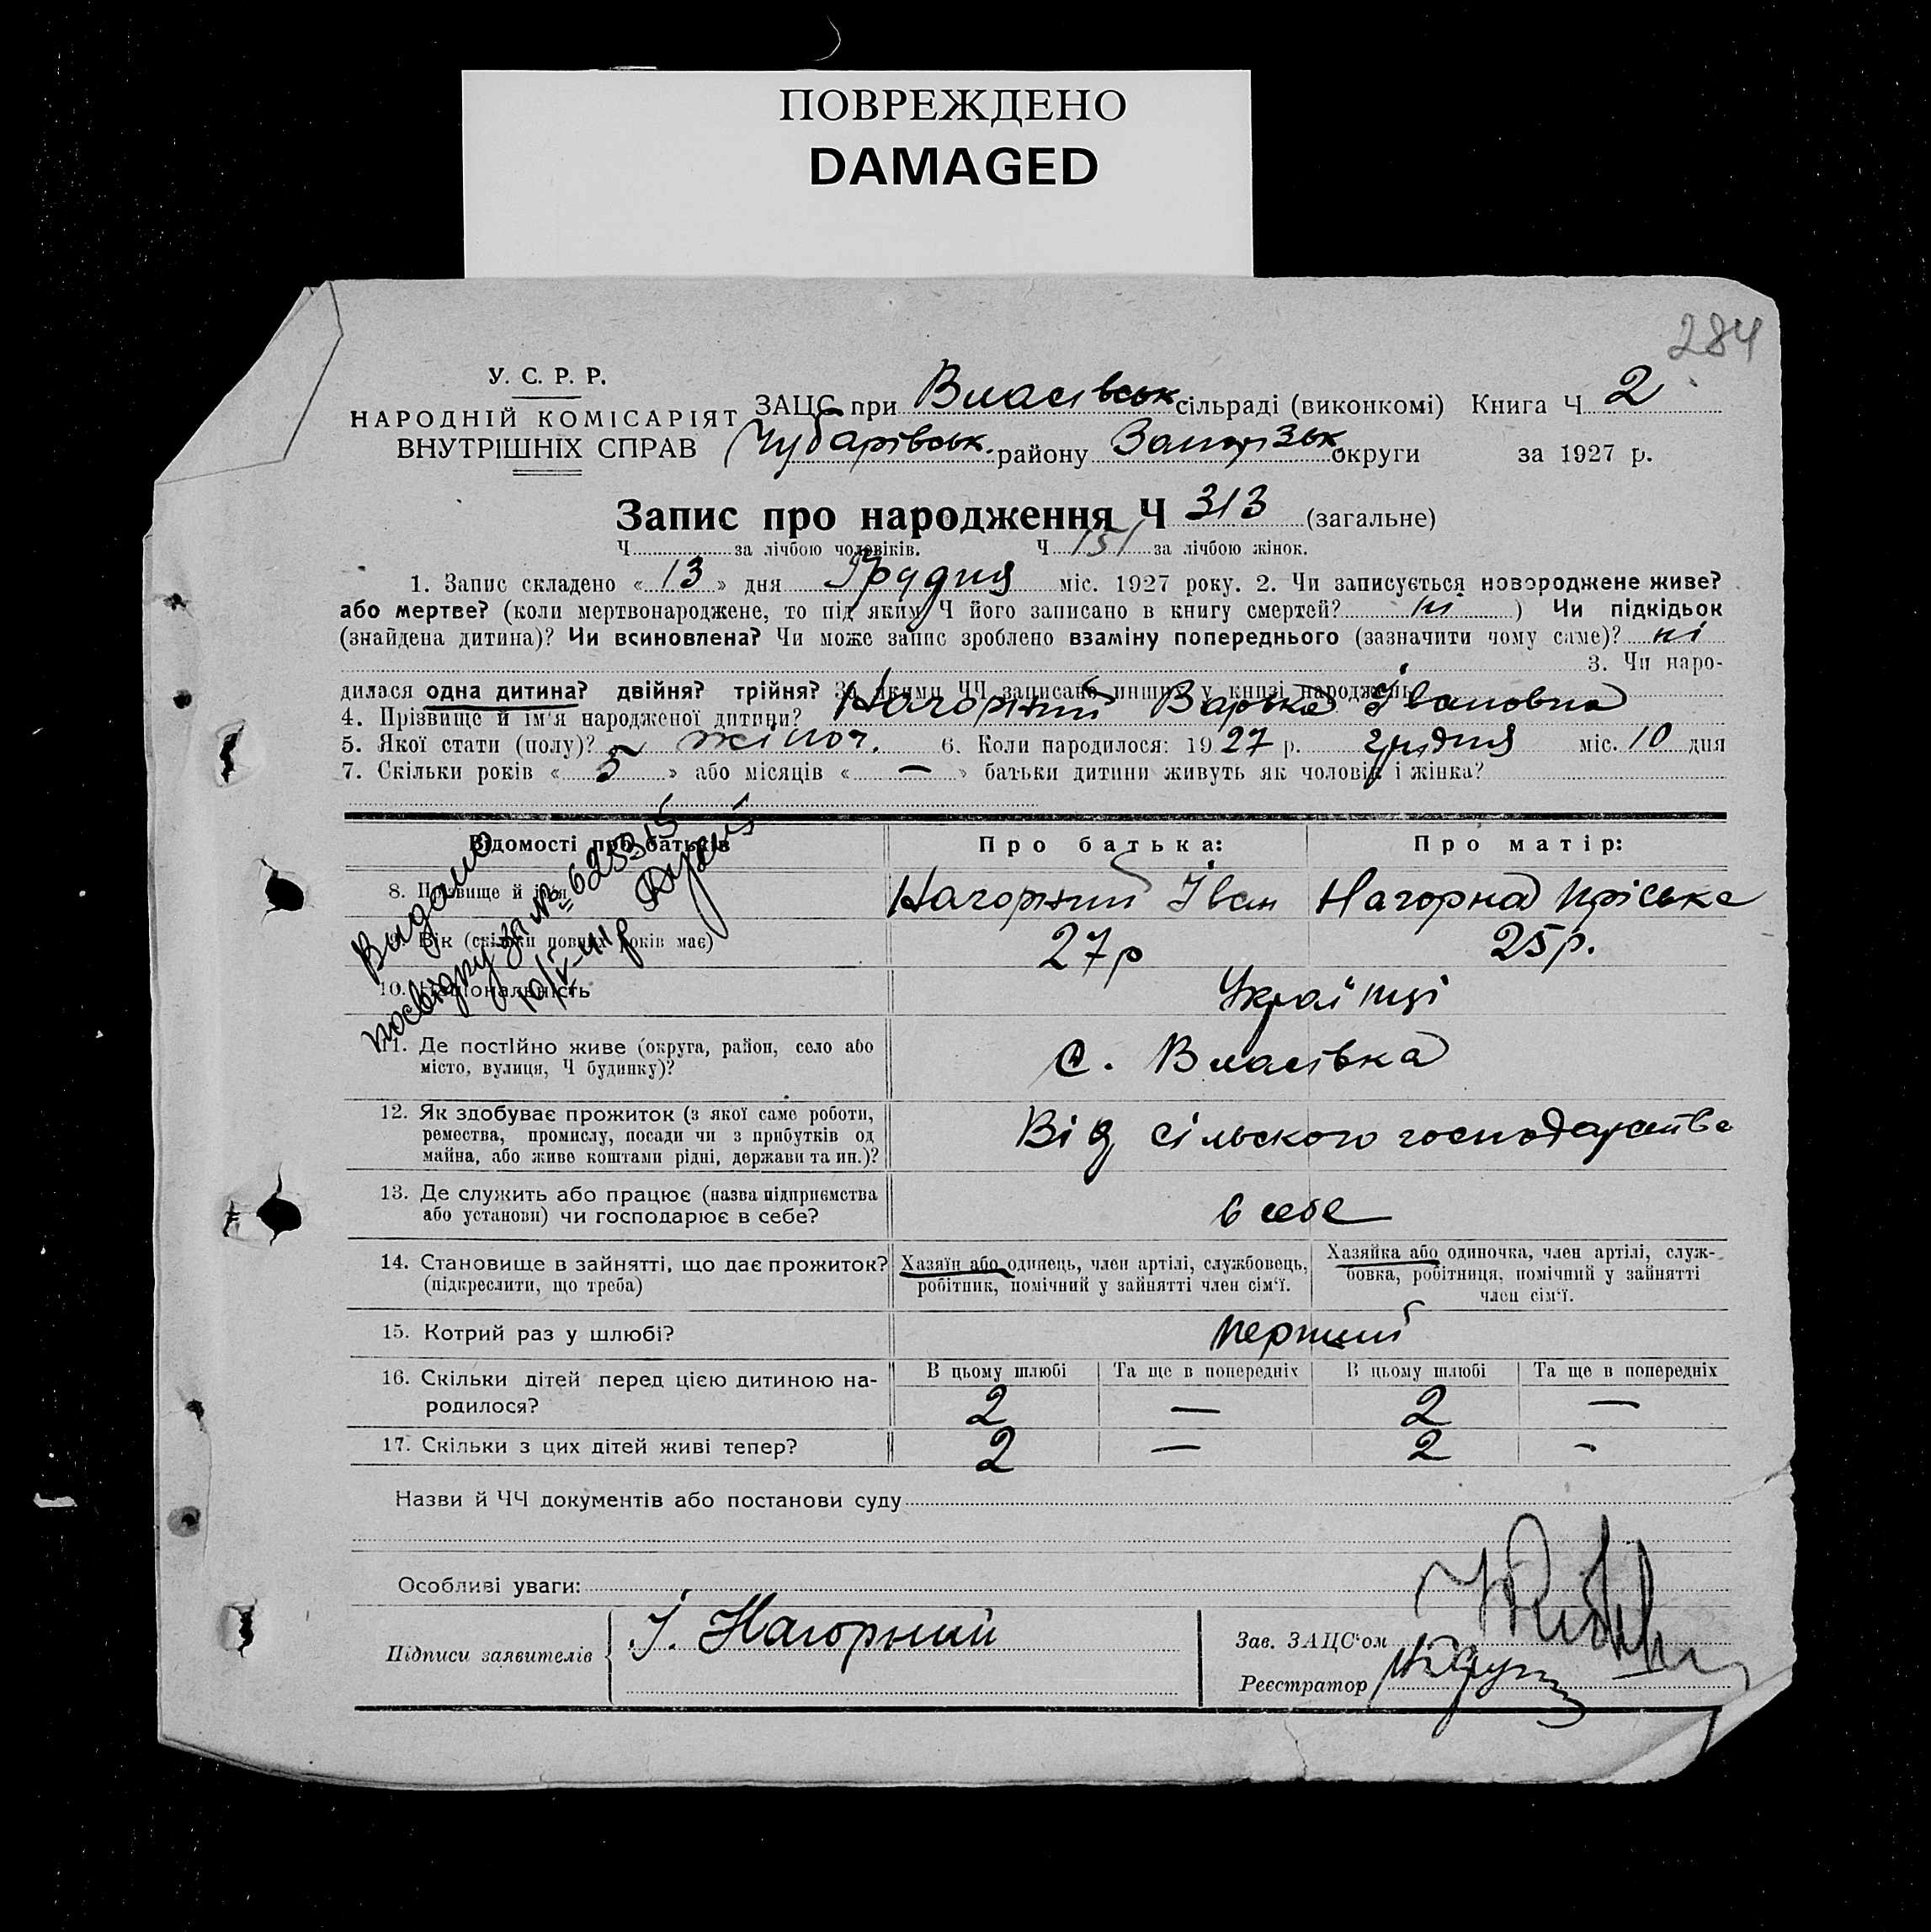 ПОВРЕЖДЕНО
DAMAGED
284
У. С. Р. Р.
НАРОДНІЙ КОМІСАРІЯТ
ВНУТРІШНІХ СПРАВ
ЗАЦС при Власівськ сільраді (виконкомі) Книга Ч 2
Чубарівськ. району Запорізьк округи за 1927 р.
Запис про народження Ч 313 (загальне)
Ч за лічбою чоловіків. Ч 151 за лічбою жінок.
1. Запис складено «13» дня Грудня міс. 1927 року. 2. Чи записується новороджене живе?
або мертве? (коли мертвонароджене, то під яким Ч його записано в книгу смертей? ні ) Чи підкідьок
(знайдена дитина)? Чи всиновлена? Чи може запис зроблено взаміну попереднього (зазначити чому саме)? ні
3. Чи наро-
дилася одна дитина? двійня? трійня? За якими ЧЧ записано инших у книзі народжень
4. Прізвище й ім'я народженої дитини? Нагорний Варвка Івановна
5. Якої стати (полу)? жіноч. 6. Коли народилося: 1927 р. грудня міс. 10 дня
7. Скільки років «5» або місяців «—» батьки дитини живуть як чоловік і жінка?
Видано
посвідку за № 625315
10/V-41р
Відомості про батьків
Про батька:
Про матір:
8. Прізвище й ім'я
Нагорний Іван
Нагорна Пріська
9. Вік (скільки повних років має)
27р
25р.
10. Національність
Українці
11. Де постійно живе (округа, район, село або
місто, вулиця, Ч будинку)?
с. Власівка
12. Як здобуває прожиток (з якої саме роботи,
ремества, промислу, посади чи з прибутків од
майна, або живе коштами рідні, держави та ин.)?
Від сільского господарства
13. Де служить або працює (назва підприємства
або установи) чи господарює в себе?
в себе
14. Становище в зайнятті, що дає прожиток?
(підкреслити, що треба)
Хазяїн або одинець, член артілі, службовець,
робітник, помічний у зайнятті член сім'ї.
Хазяйка або одиночка, член артілі, служ-
бовка, робітниця, помічний у зайнятті
член сім'ї.
15. Котрий раз у шлюбі?
перший
16. Скільки дітей перед цією дитиною на-
родилося?
В цьому шлюбі
Та ще в попередніх
В цьому шлюбі
Та ще в попередніх
2 — 2 —
17. Скільки з цих дітей живі тепер?
2 — 2 -
Назви й ЧЧ документів або постанови суду
Особливі уваги:
Підписи заявителів
І. Нагорний
Зав. ЗАЦС'ом
Реєстратор